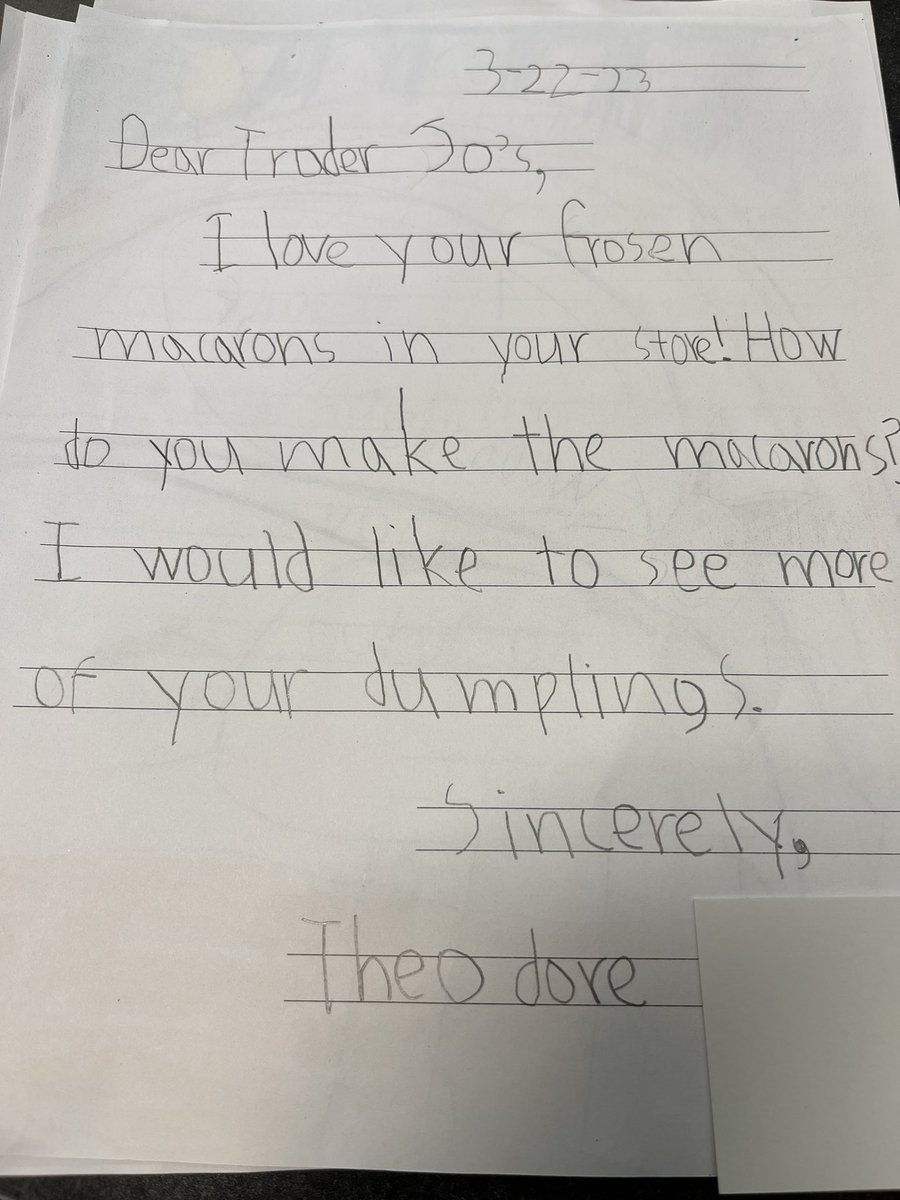 3-22-23
Dear Trader Jo's,
I love your frosen
macarons in your store! How
do you make the macarons?
I would like to see more
of your dumplings.
Sincerely,
Theodore